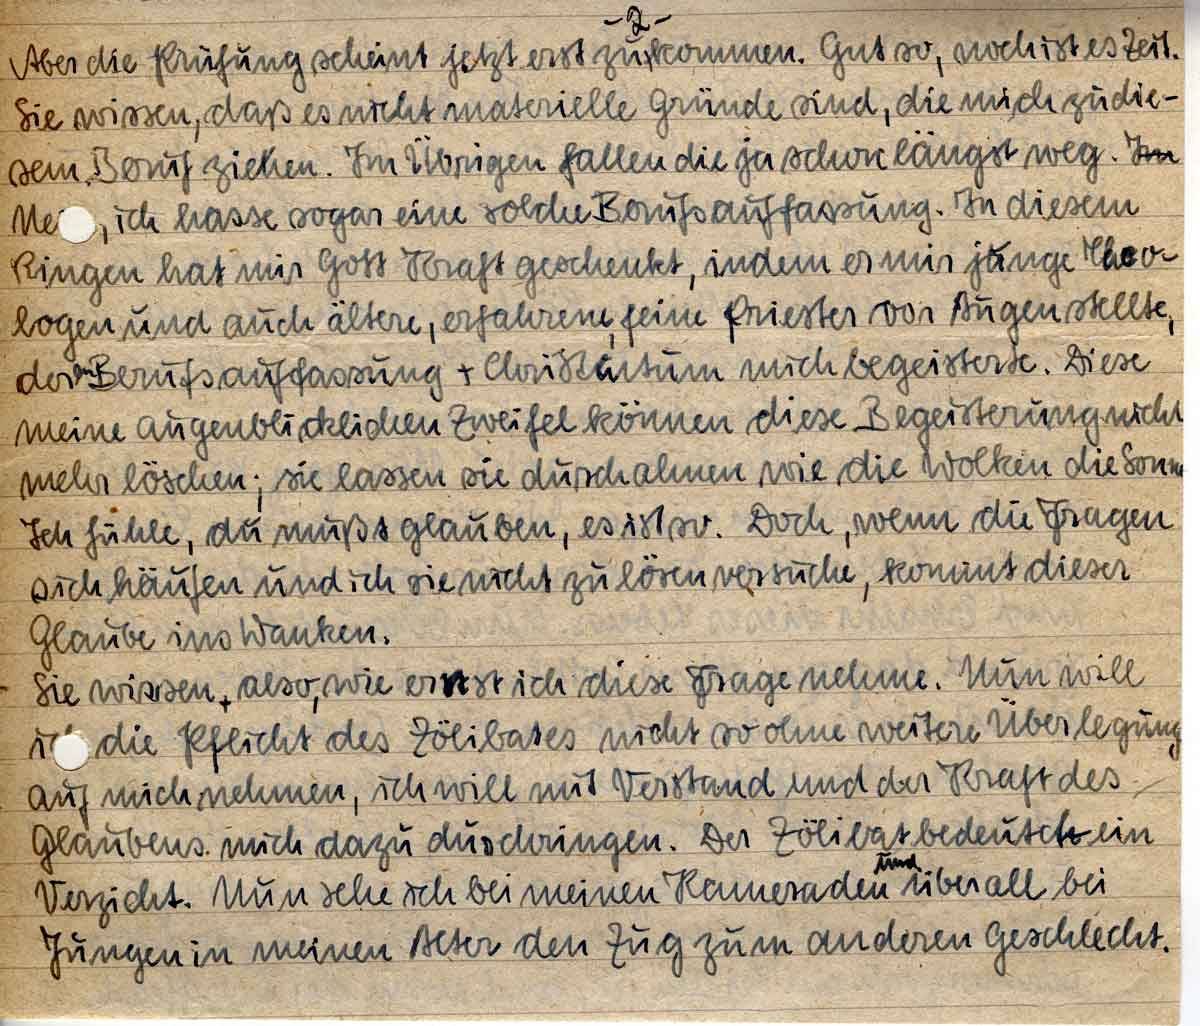 -2-
Aber die Prüfung scheint jetzt erst zu kommen. Gut so, noch ist es Zeit.
Sie wissen, daß es nicht materielle Gründe sind, die mich zu die-
sem Beruf ziehen. Im Übrigen fallen die ja schon längst weg. Im
Ne , ich hasse sogar eine solche Berufsauffassung. In diesem
Ringen hat mir Gott Kraft geschenkt, indem er mir junge Theo-
logen und auch ältere, erfahrene, feine Priester vor Augen stellte,
deren Berufsauffassung + Christentum mich begeisterte. Diese
meine augenblicklichen Zweifel können diese Begeisterung nicht
mehr löschen; sie lassen sie durchahnen wie die Wolken die Sonne
Ich fühle, du mußt glauben, es ist so. Doch, wenn die Fragen
sich häufen und ich sie nicht zu lösen versuche, kommt dieser
Glaube ins Wanken.
Sie wissen, also, wie ernst ich diese Frage nehme. Nun will
ich die Pflicht des Zölibates nicht so ohne weitere Überlegung
auf mich nehmen, ich will mit Verstand und der Kraft des
Glaubens mich dazu durchringen. Der Zölibat bedeutet ein
Verzicht. Nun sehe ich bei meinen Kameraden und überall bei
Jungen in meinen Alter den Zug zum anderen Geschlecht.